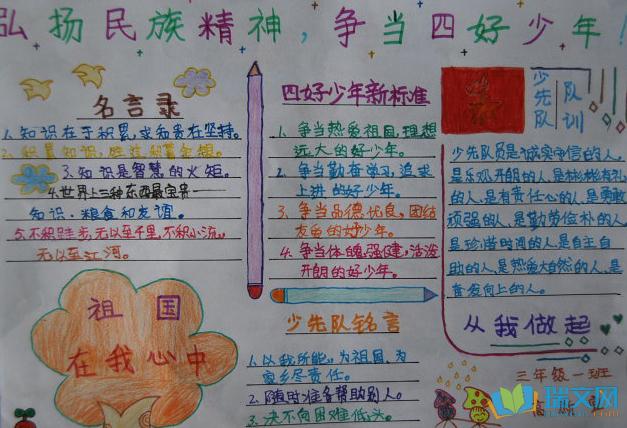 弘扬民族精神，争当四好少年！
名言录
1.知识在于积累，求知贵在坚持。
2.积累知识，胜过积蓄金银。
3.知识是智慧的火矩。
4.世界上三种东西最宝贵——
知识、粮食和友谊。
5.不积跬步，无以至千里，不积小流，
无以至江河。
祖国
在我心中
四好少年新标准
1.争当热爱祖国，理想
远大的好少年。
2.争当勤奋学习，追求
上进的好少年。
3.争当品德优良，团结
友爱的好少年。
4.争当体魄强健，活泼
开朗的好少年。
少先队铭言
1.以我所能，为祖国，为
家乡尽责任。
2.随时准备帮助别人。
3.决不向困难低头。
少先队
队训
少先队员是诚实守信的人，
是乐观开朗的人，是彬彬有礼
的人，是有责任心的人，是勇敢
顽强的人，是勤劳俭朴的人，
是珍惜时间的人，是自主自
助的人，是热爱大自然的人，是
奋发向上的人。
从我做起
三年级一班
瑞文网